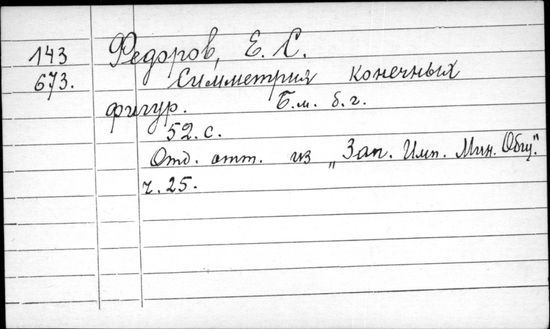 143 Федоров, Е. С.
673. Симметрия конечных
фигур. Б.м. б.г.
52. с.
Отд. отт. из „Зап. Имп. Мин. Общ."
ч. 25.